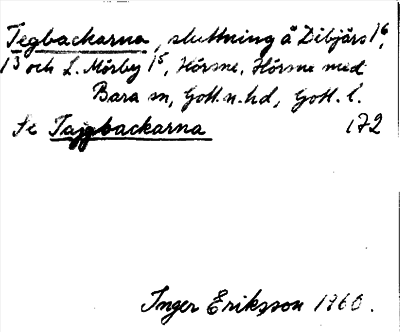 Tegbackarna, sluttning å Dibjärs 1⁶,
1³ och L. Mörby 1⁵, Hörsne, Hörsne med
Bara sn, Gotl.n.hd, Gotl. l.
Se Tajgbackarna 172
Inger Eriksson 1960.